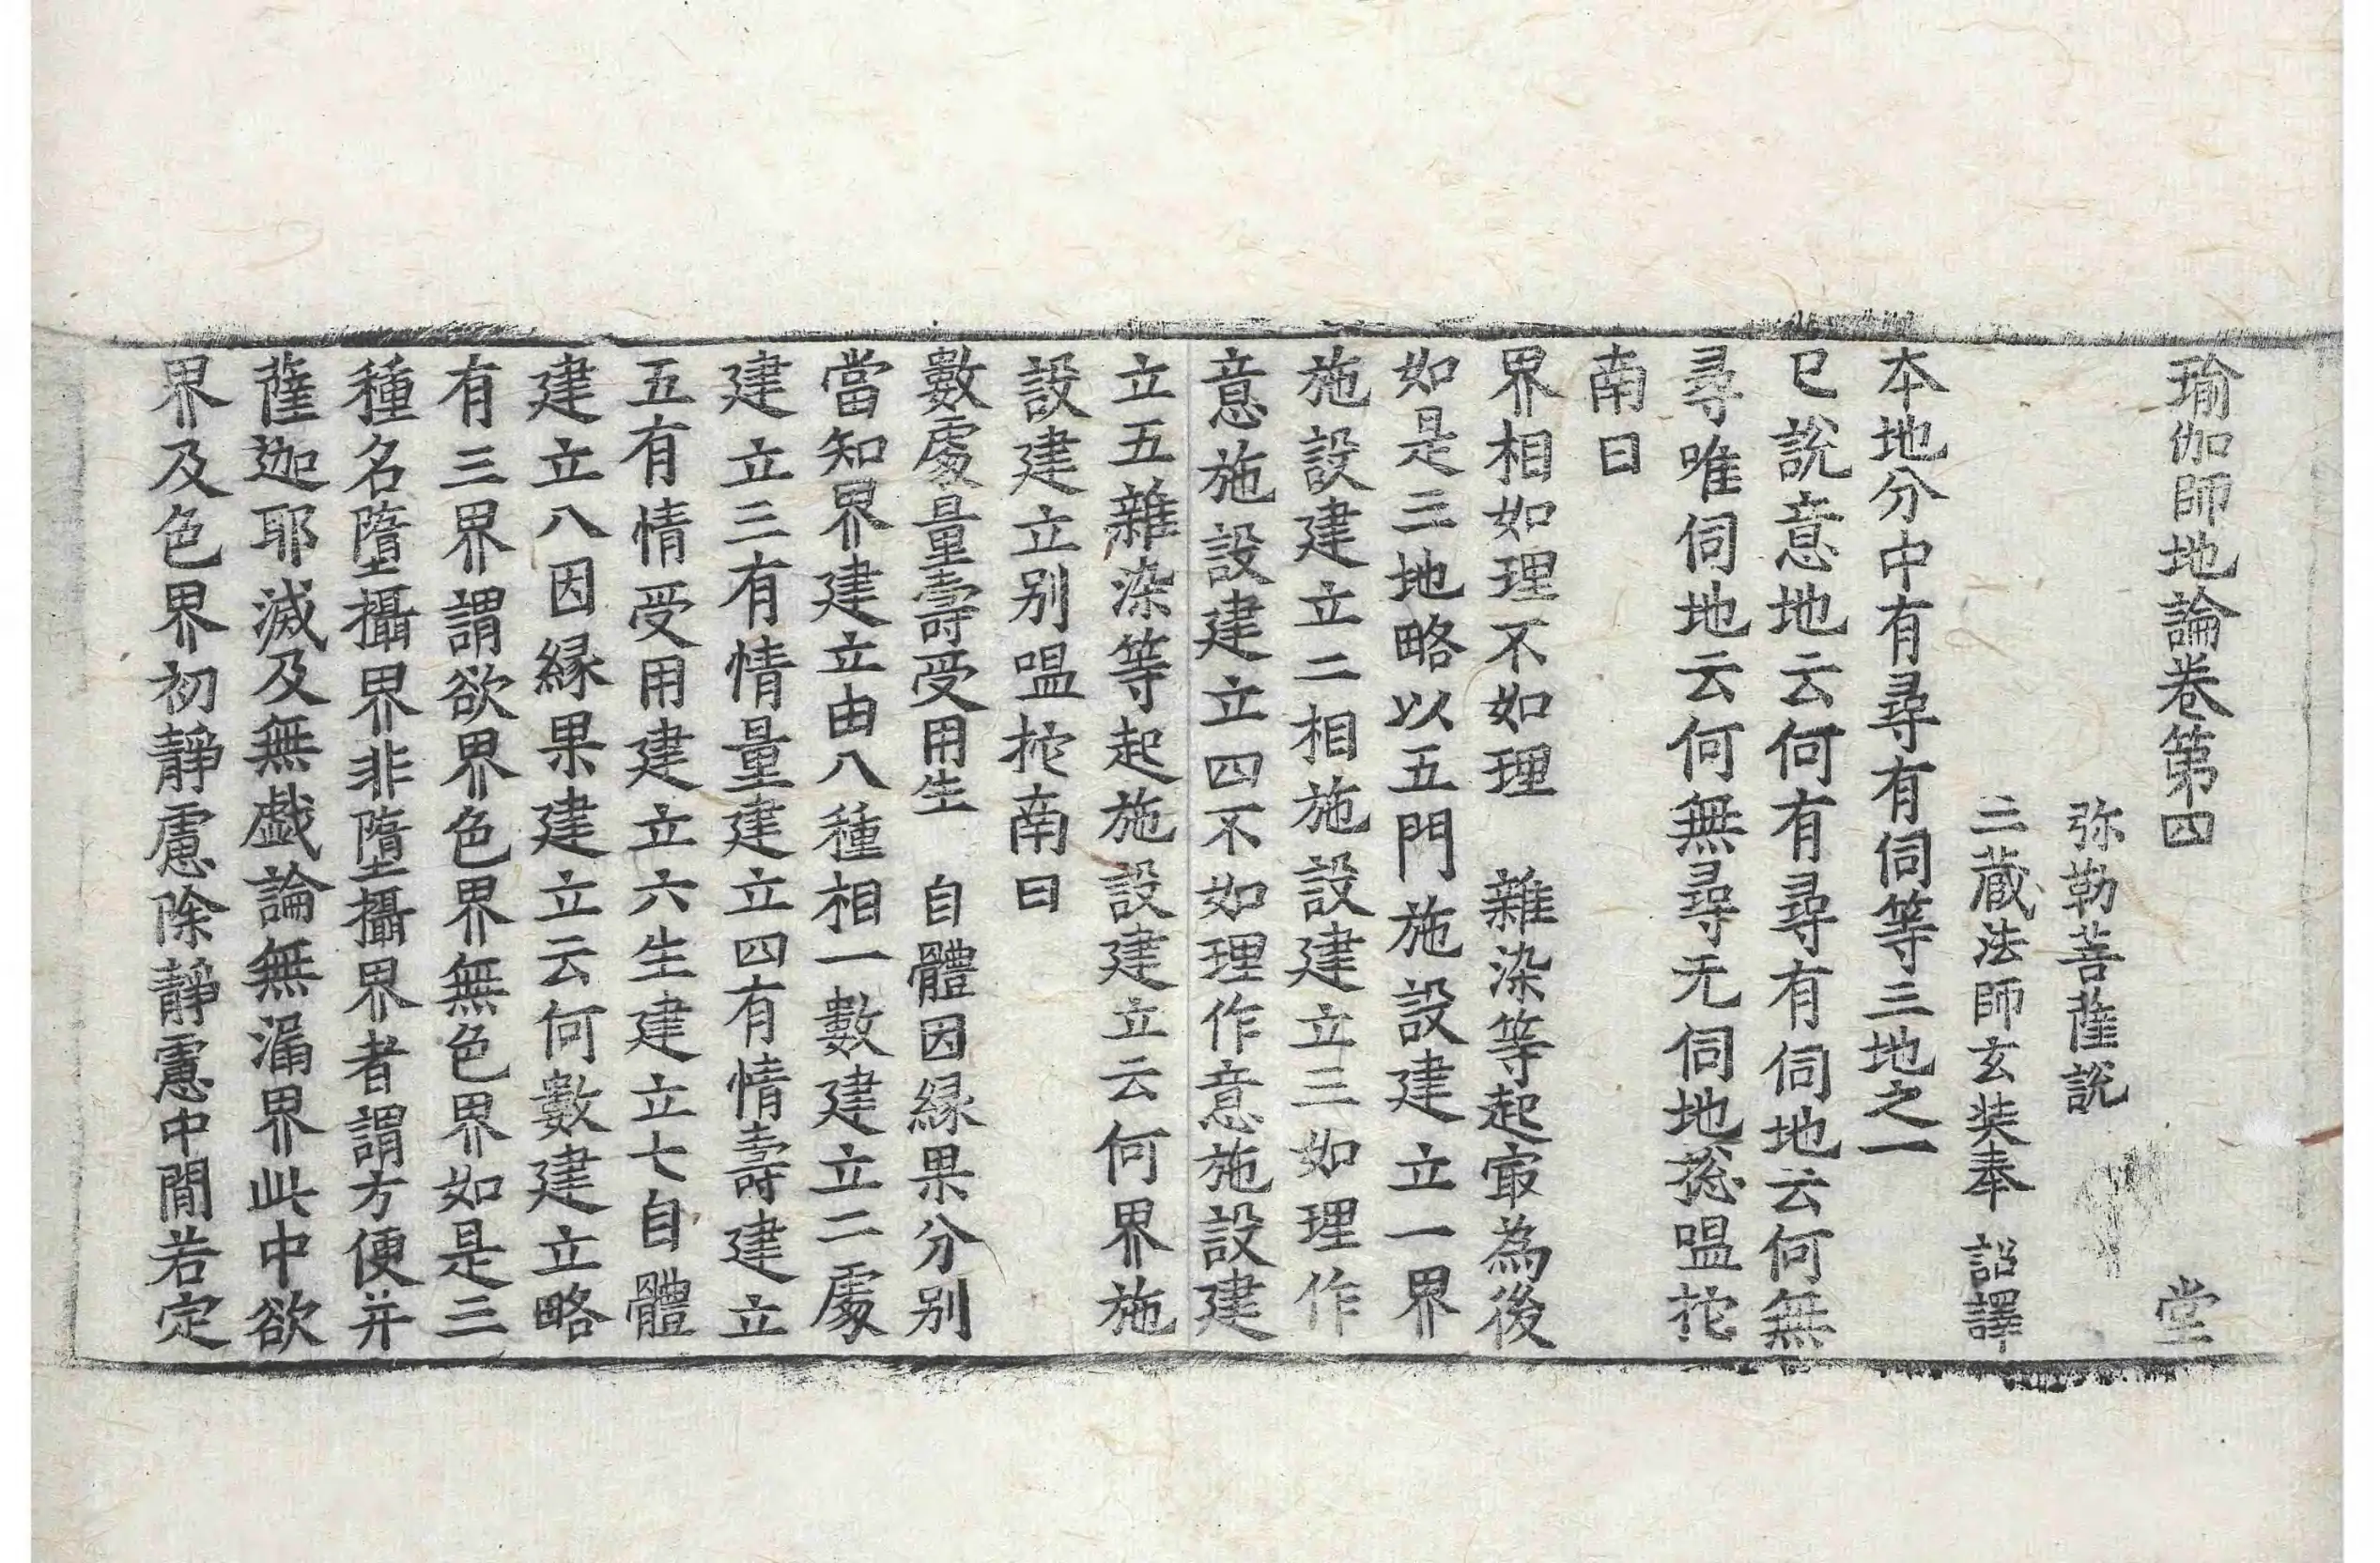 瑜伽師地論卷第四 堂
弥勒菩薩說
三蔵法師玄奘奉 詔譯
本地分中有尋有伺等三地之一
已說意地云何有尋有伺地云何無
尋唯伺地云何無尋无伺地捴嗢拕
南曰
界相如理不如理 雜染等起㝡為後
如是三地略以五門施設建立一界
施設建立二相施設建立三如理作
意施設建立四不如理作意施設建
立五雜染等起施設建立云何界施
設建立別嗢拕南曰
數處量壽受用生 自體因縁果分別
當知界建立由八種相一數建立二處
建立三有情量建立四有情壽建立
五有情受用建立六生建立七自體
建立八因縁果建立云何數建立略
有三界謂欲界色界無色界如是三
種名墮攝界非墮攝界者謂方便并
薩迦耶滅及無戯論無漏界此中欲
界及色界初靜慮除靜慮中間若定